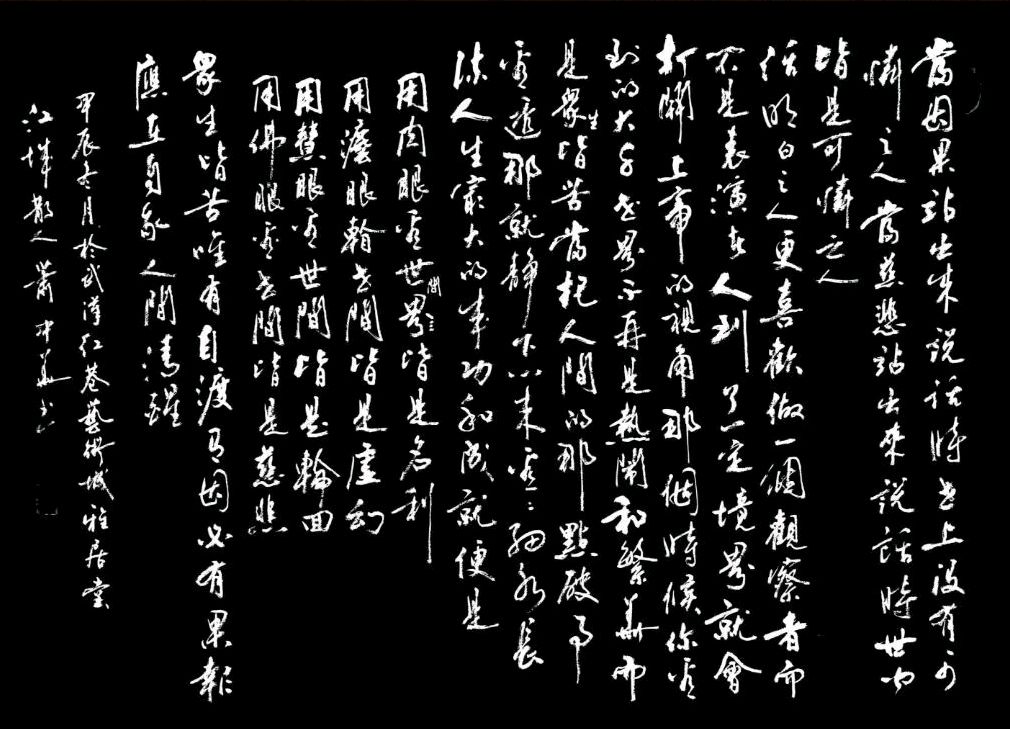 當因果站出來説話時世上没有可
憐之人當慈悲站出來説話時世間
皆是可憐之人
活明白之人更喜歡做一個觀察者而
不是表演者人到了一定境界就會
打開上帝的視角那個時候你看
到的大千世界不再是熱鬧和繁華而
是衆生皆苦當把人間的那點破事
看透那就静下心來看看細水長
流人生最大的成功和成就便是
用肉眼看世間界皆是名利
用濾眼輪世間皆是虚幻
用慧眼看世間皆是輪回
用佛眼看世間皆是慈悲
衆生皆苦唯有自渡有因必有果報
應在自家人間清醒
甲辰冬月於武漢紅巷藝術城雅居堂
江城散人蕭中華书